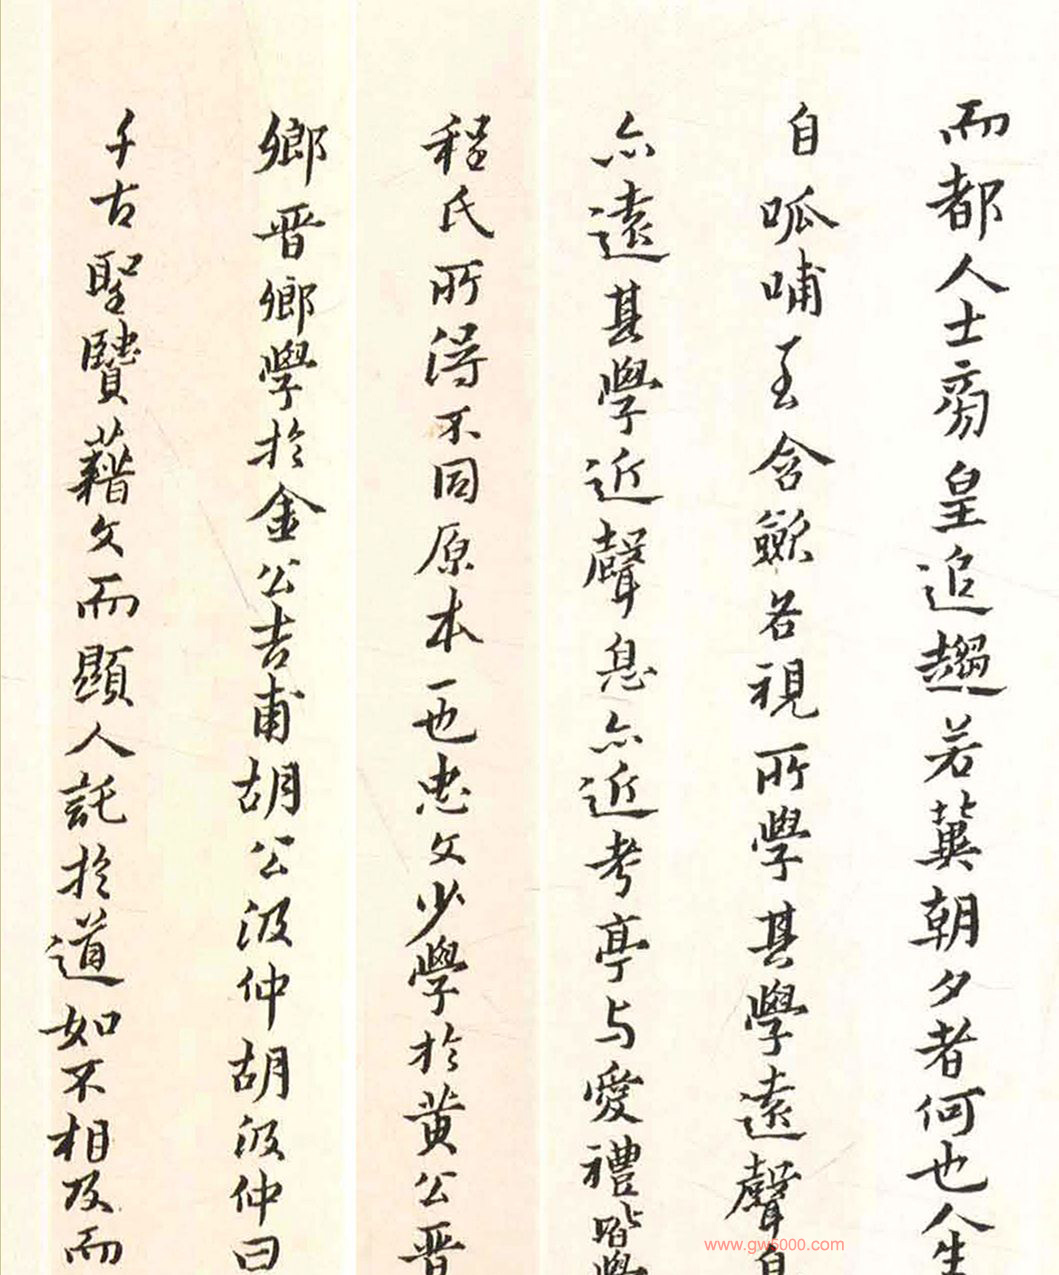 而都人士旁皇追趨若冀朝夕者何也人生
自呱哺至含歛名視所學其學遠聲息
亦遠其學近聲息亦近考亭与愛禮皆學
程氏所得不同原本一也忠文少學於黃公晋
鄉晋鄉學於金公吉甫胡公汲仲胡汲仲曰
千古聖贒藉文而顯人託於道如不相及而
www.gw5000.com